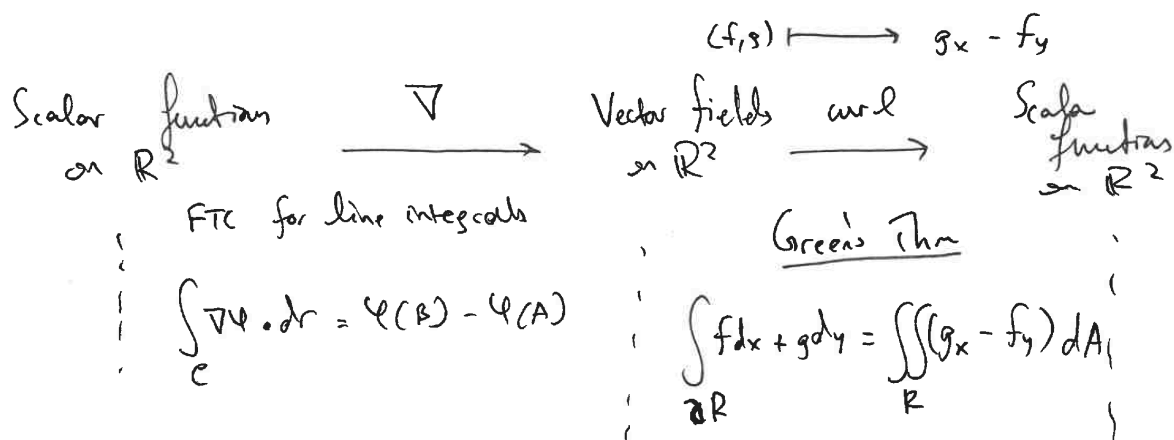 (f,g) ⟼ g_x - f_y
Scalar functions on ℝ² ⟶ Vector fields on ℝ² ⟶ Scala functions on ℝ²
∇
curl
FTC for line integrals
Green's Thm
∫_C ∇φ · dr = φ(B) - φ(A)
∫_{∂R} f dx + g dy = ∬_R (g_x - f_y) dA